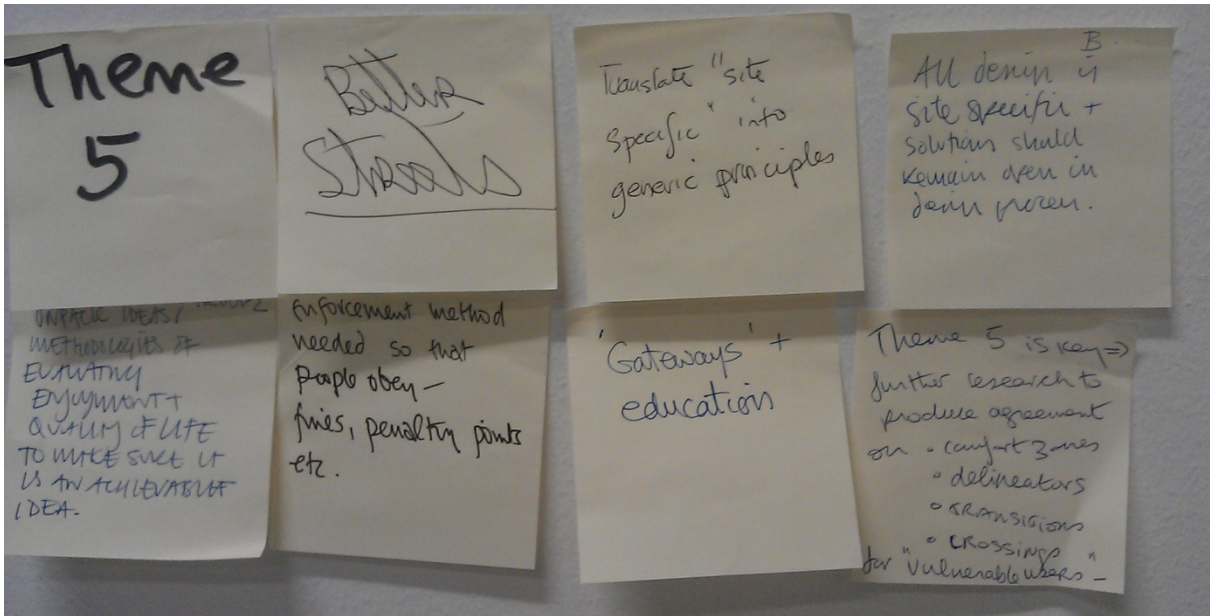 Theme
5
Better
Streets
Translate "site
specific" into
generic principles
B.
All design is
site specific +
solutions should
remain open in
design process.
IDEAS /
METHODOLOGIES OF
EVALUATING
ENJOYMENT +
QUALITY OF LIFE
TO MAKE SURE IT
IS AN ACHIEVABLE
IDEA.
Enforcement method
needed so that
people obey -
fines, penalty points
etc.
'Gateways' +
education
Theme 5 is key ⇒
further research to
produce agreement
on • comfort zones
• delineators
• TRANSITIONS
• CROSSINGS
for "vulnerable users" -